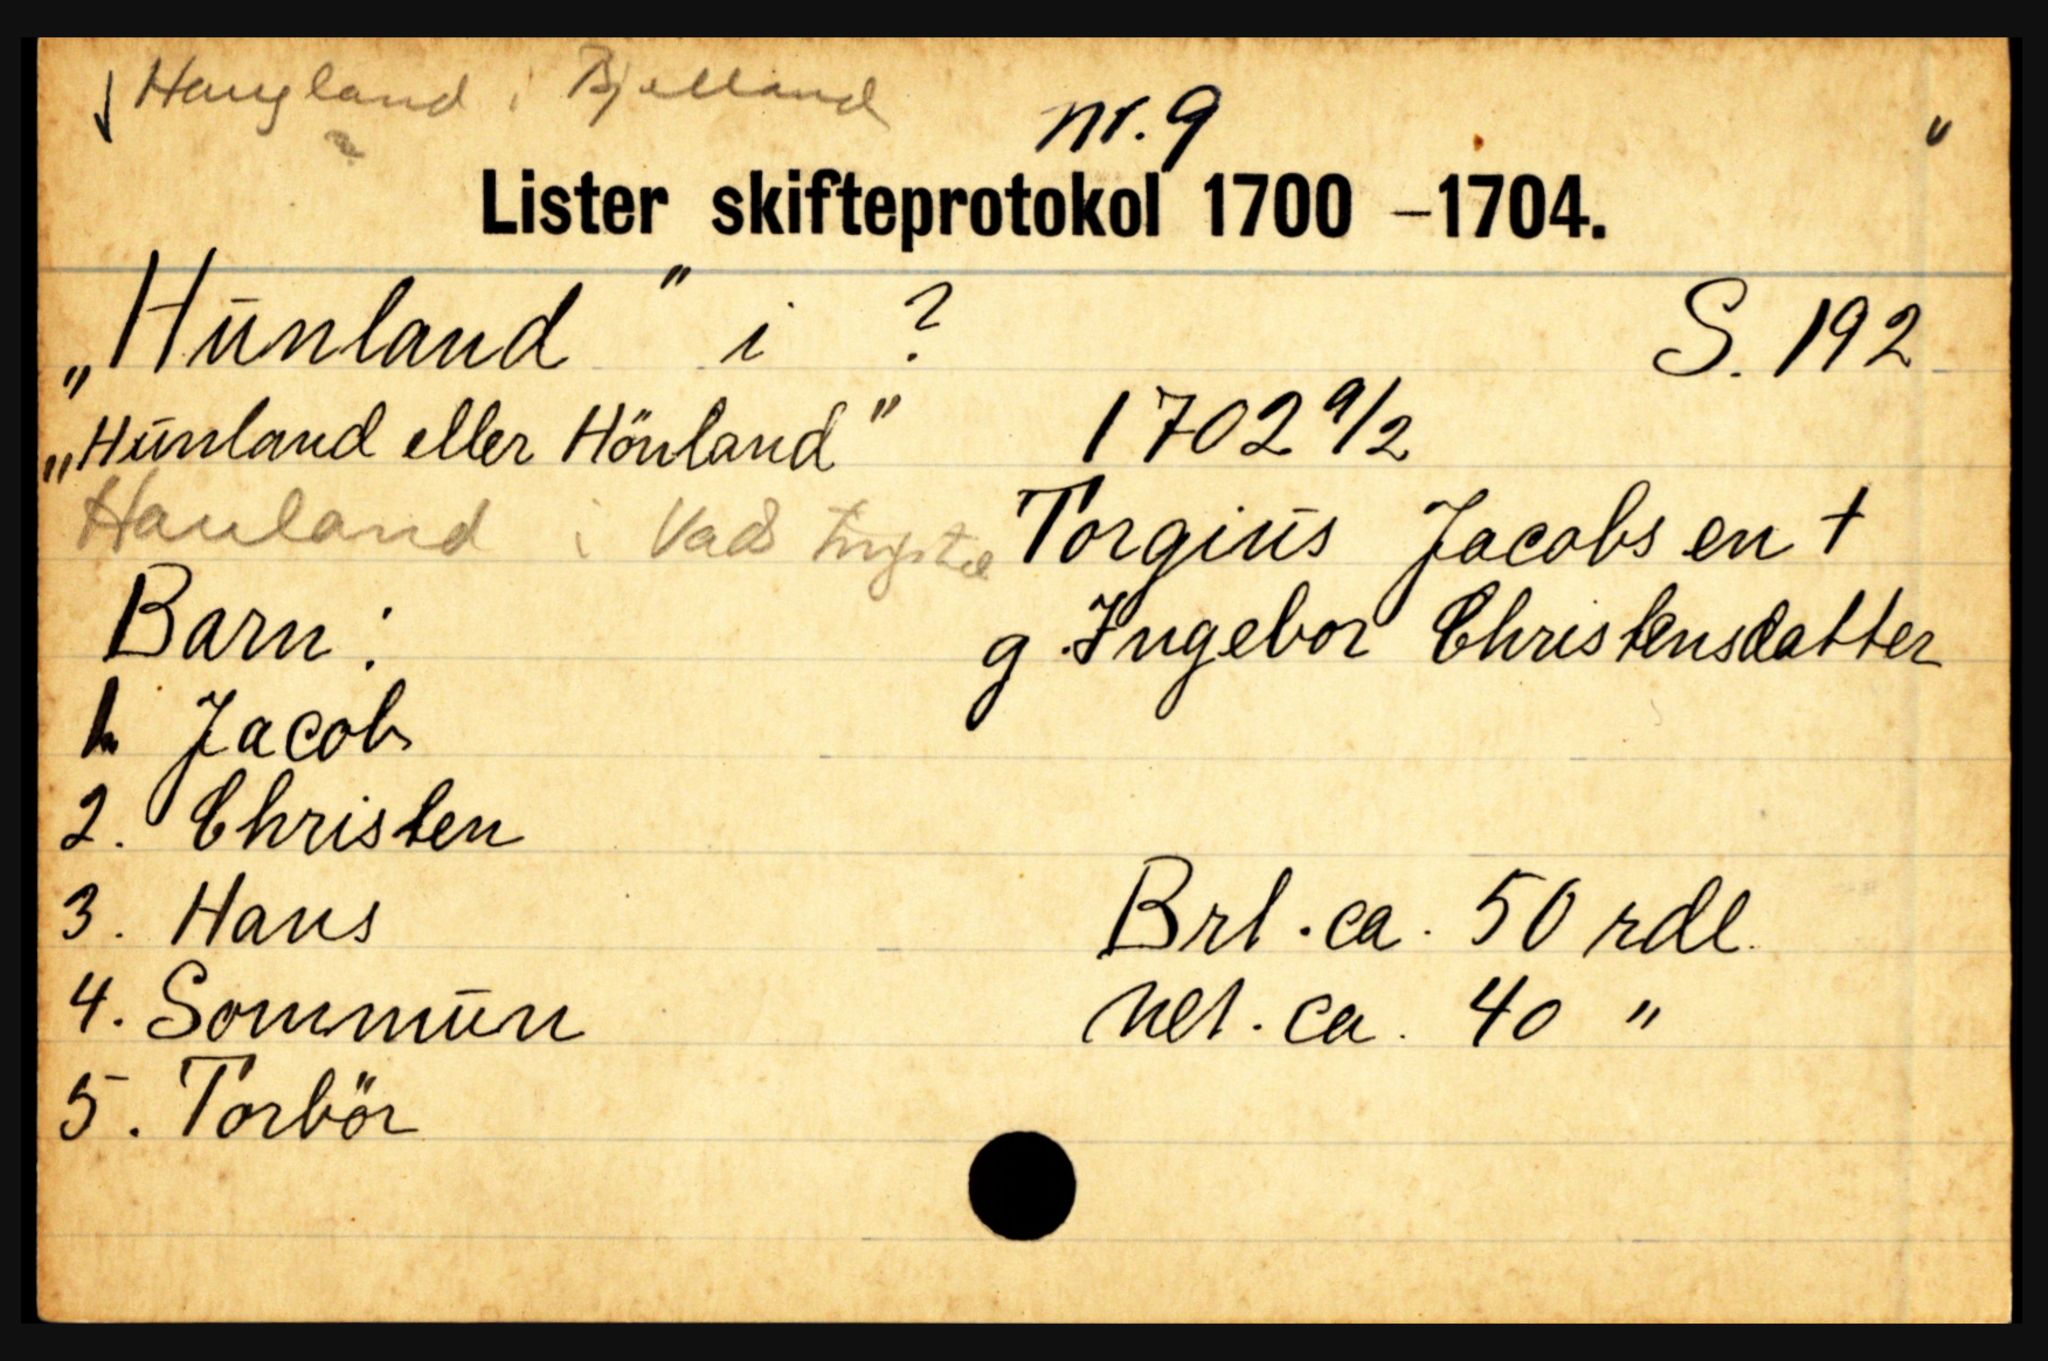 Haugland i Bjelland
?
nr. 9
"
Lister skifteprotokol 1700 – 1704.
„Hunland" i ? S. 192
„Hunland eller Hönland" 1702 9/2
Hauland i Vads Torgius Jacobsen †
Barn: g. Ingebor Christensdatter
1. Jacob
2. Christen
3. Hans Brt. ca. 50 rdl.
4. Sommun Net. ca. 40 "
5. Torbör